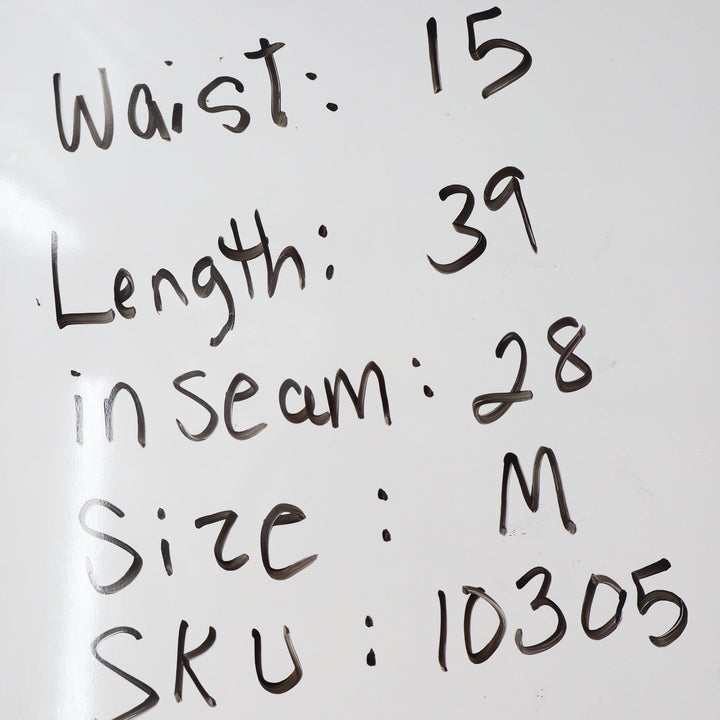 Waist: 15
Length: 39
inseam: 28
Size: M
SKU: 10305